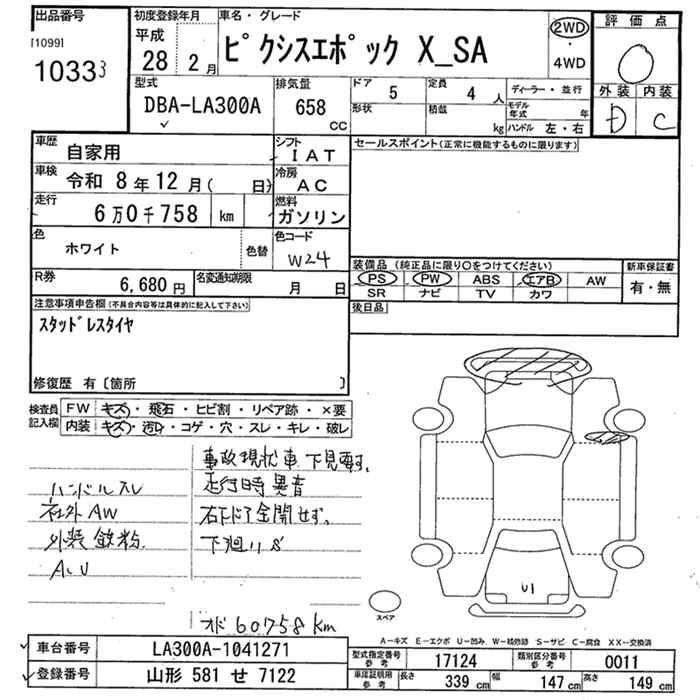 出品番号
[1099]
1033 3
初度登録年月
平成
28 2月
車名・グレード
ピクシスエポック X_SA
2WD
・
4WD
評価点
0
外装 内装
D C
型式
DBA-LA300A
排気量
658
CC
ドア 5
定員 4 人
ディーラー・並行
形状
積載 kg
モデル年式 年
ハンドル 左・右
車歴 自家用
シフト IAT
セールスポイント(正常に機能するものに限ります)
車検 令和 8年12月( 日)
冷房 AC
走行 6万0千758 km
燃料 ガソリン
色 ホワイト
色替
色コード W24
装備品 (純正品に限り○をつけてください)
新車保証書
PS PW ABS エアB AW
有・無
SR ナビ TV カワ
R券 6,680円
名変通知期限 月 日
後日品
注意事項申告欄(不具合内容等は具体的に記入して下さい)
スタッドレスタイヤ
修復歴 有〔箇所 〕
検査員記入欄
FW キズ・飛石・ヒビ割・リペア跡・×要
内装 キズ・汚れ・コゲ・穴・スレ・キレ・破レ
事故現状車 下見要す。
ハンドルスレ
走行時異音
社外AW
右ドア全開せず。
外装鉄粉
下廻りS
AU
オド60758km
U1
スペア
A-キズ E-エクボ U-凹み W-補修跡 S-サビ C-腐食 XX-交換済
車台番号 LA300A-1041271
登録番号 山形 581 せ 7122
型式指定番号 参考 17124
類別区分番号 参考 0011
車庫証明用 参考 長さ 339 cm 幅 147 cm 高さ 149 cm